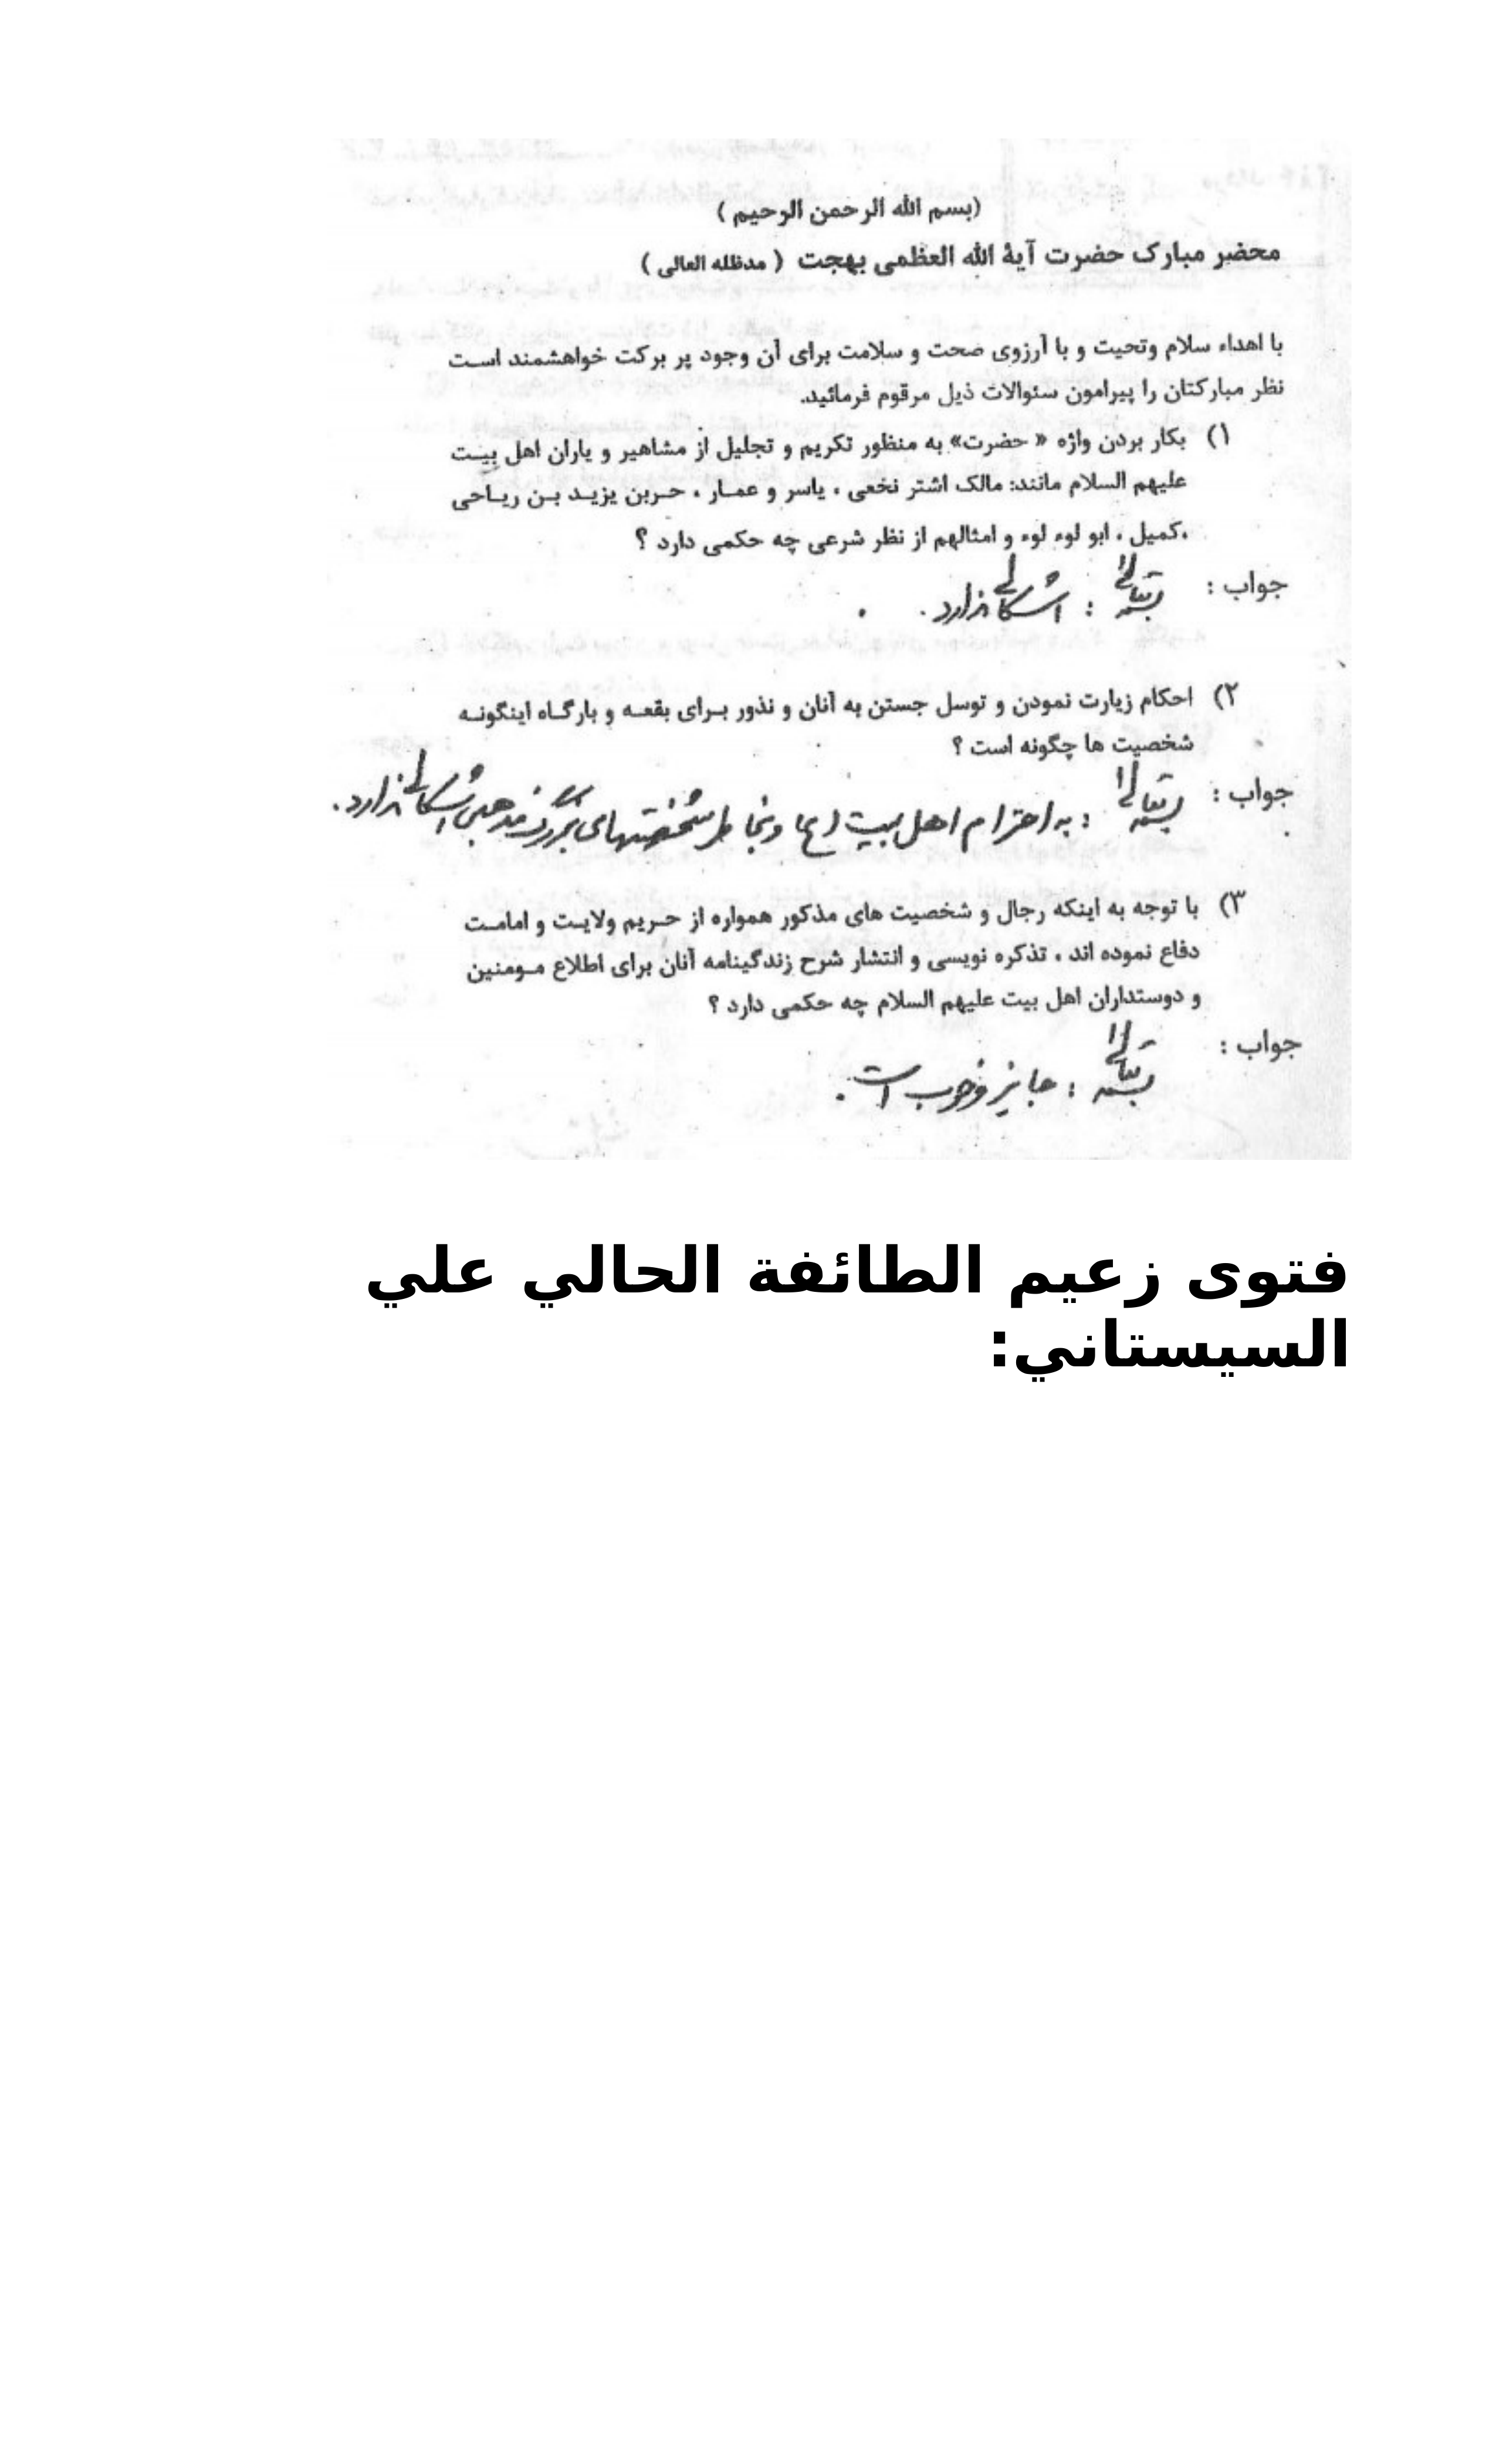 (بسم الله الرحمن الرحیم )
محضر مبارک حضرت آیة الله العظمی بهجت ( مدظله العالی )
با اهداء سلام وتحیت و با آرزوی صحت و سلامت برای آن وجود پر برکت خواهشمند است
نظر مبارکتان را پیرامون سئوالات ذیل مرقوم فرمائید.
۱) بکار بردن واژه « حضرت» به منظور تکریم و تجلیل از مشاهیر و یاران اهل بیت
علیهم السلام مانند: مالک اشتر نخعی ، یاسر و عمار ، حربن یزید بن ریاحی
،کمیل ، ابو لوء لوء و امثالهم از نظر شرعی چه حکمی دارد ؟
جواب : بسمه تعالی : اشکالی ندارد .
۲) احکام زیارت نمودن و توسل جستن به آنان و نذور برای بقعه و بارگاه اینگونه
شخصیت ها چگونه است ؟
جواب : بسمه تعالی : به احترام اهل بیت (ع) و بخاطر شخصیتهای بزرگ مذهبی اشکالی ندارد .
۳) با توجه به اینکه رجال و شخصیت های مذکور همواره از حریم ولایت و امامت
دفاع نموده اند ، تذکره نویسی و انتشار شرح زندگینامه آنان برای اطلاع مومنین
و دوستداران اهل بیت علیهم السلام چه حکمی دارد ؟
جواب : بسمه تعالی : جایز و خوب است .
فتوى زعيم الطائفة الحالي علي
السيستاني: